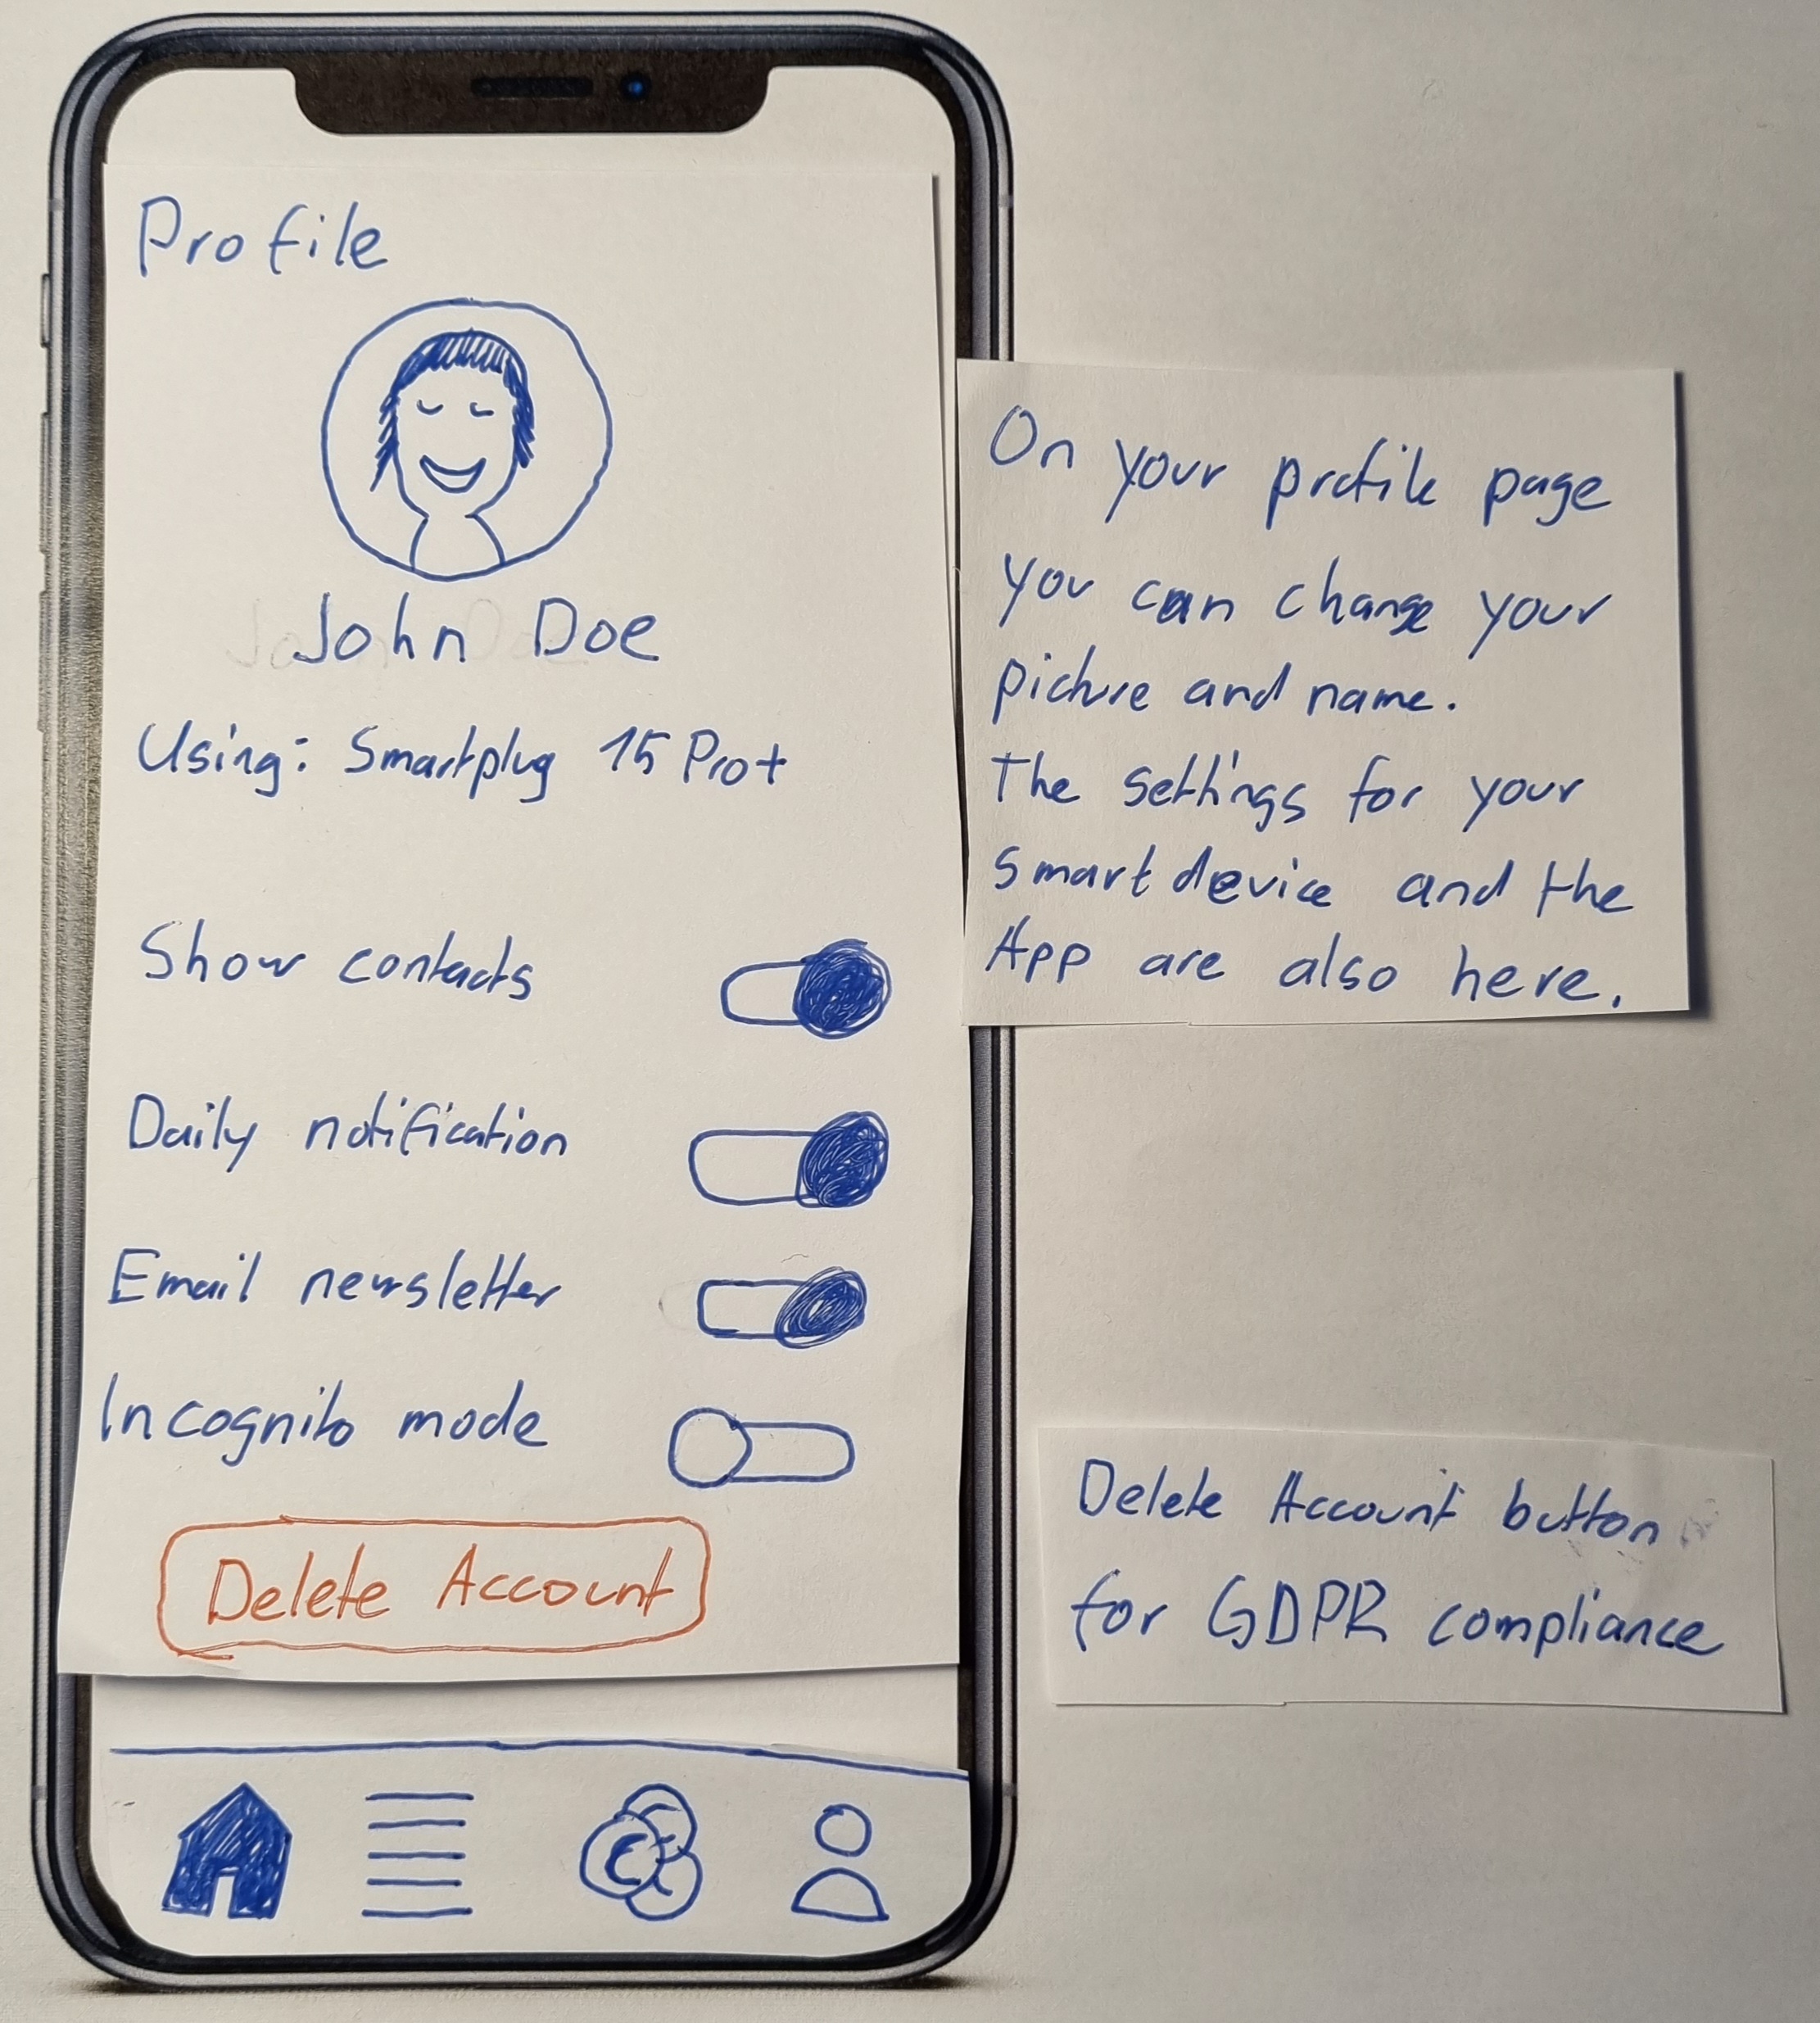 Profile
John Doe
Using: Smartplug 15 Pro+
Show contacts
Daily notification
Email newsletter
Incognito mode
Delete Account
On your profile page
you can change your
picture and name.
The settings for your
smart device and the
App are also here.
Delete Account button
for GDPR compliance